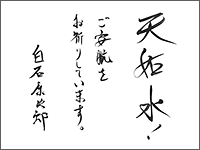 天如水！
ご安航を
お祈りしています。
白石康次郎